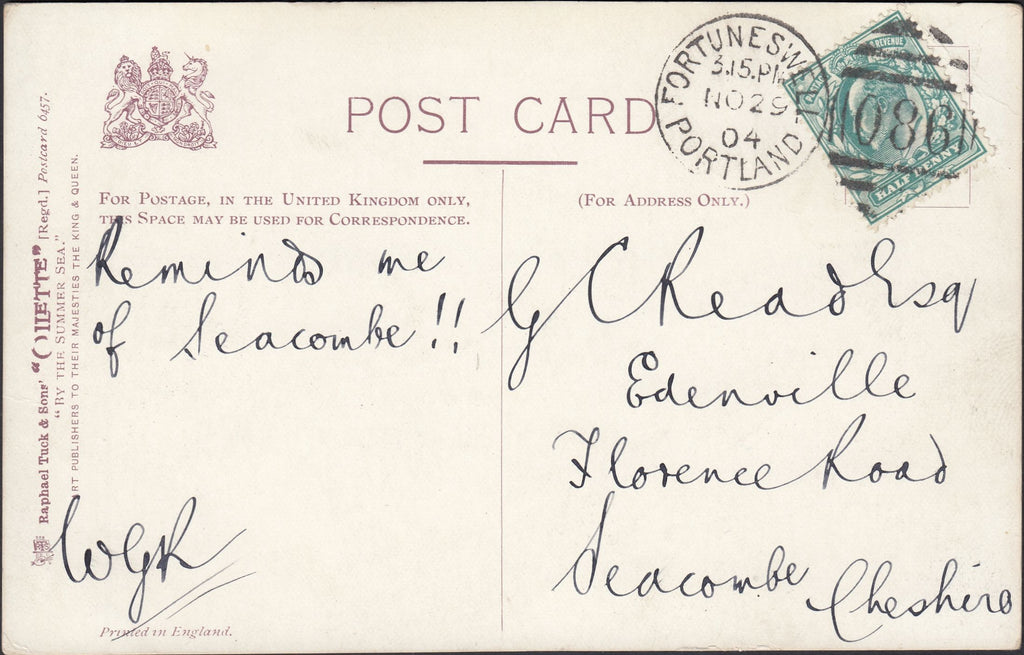 POST CARD
FOR POSTAGE, IN THE UNITED KINGDOM ONLY,
THIS SPACE MAY BE USED FOR CORRESPONDENCE.
(FOR ADDRESS ONLY.)
FORTUNESWELL
3.15.PM
NO 29
04
PORTLAND
REVENUE
086
HALFPENNY
Raphael Tuck & Sons' "OILETTE" [Regd.] Postcard 6457.
"BY THE SUMMER SEA."
ART PUBLISHERS TO THEIR MAJESTIES THE KING & QUEEN.
Reminds me
of Seacombe!!
WGR
Printed in England.
G C Read Esq
Edenville
Florence Road
Seacombe
Cheshire